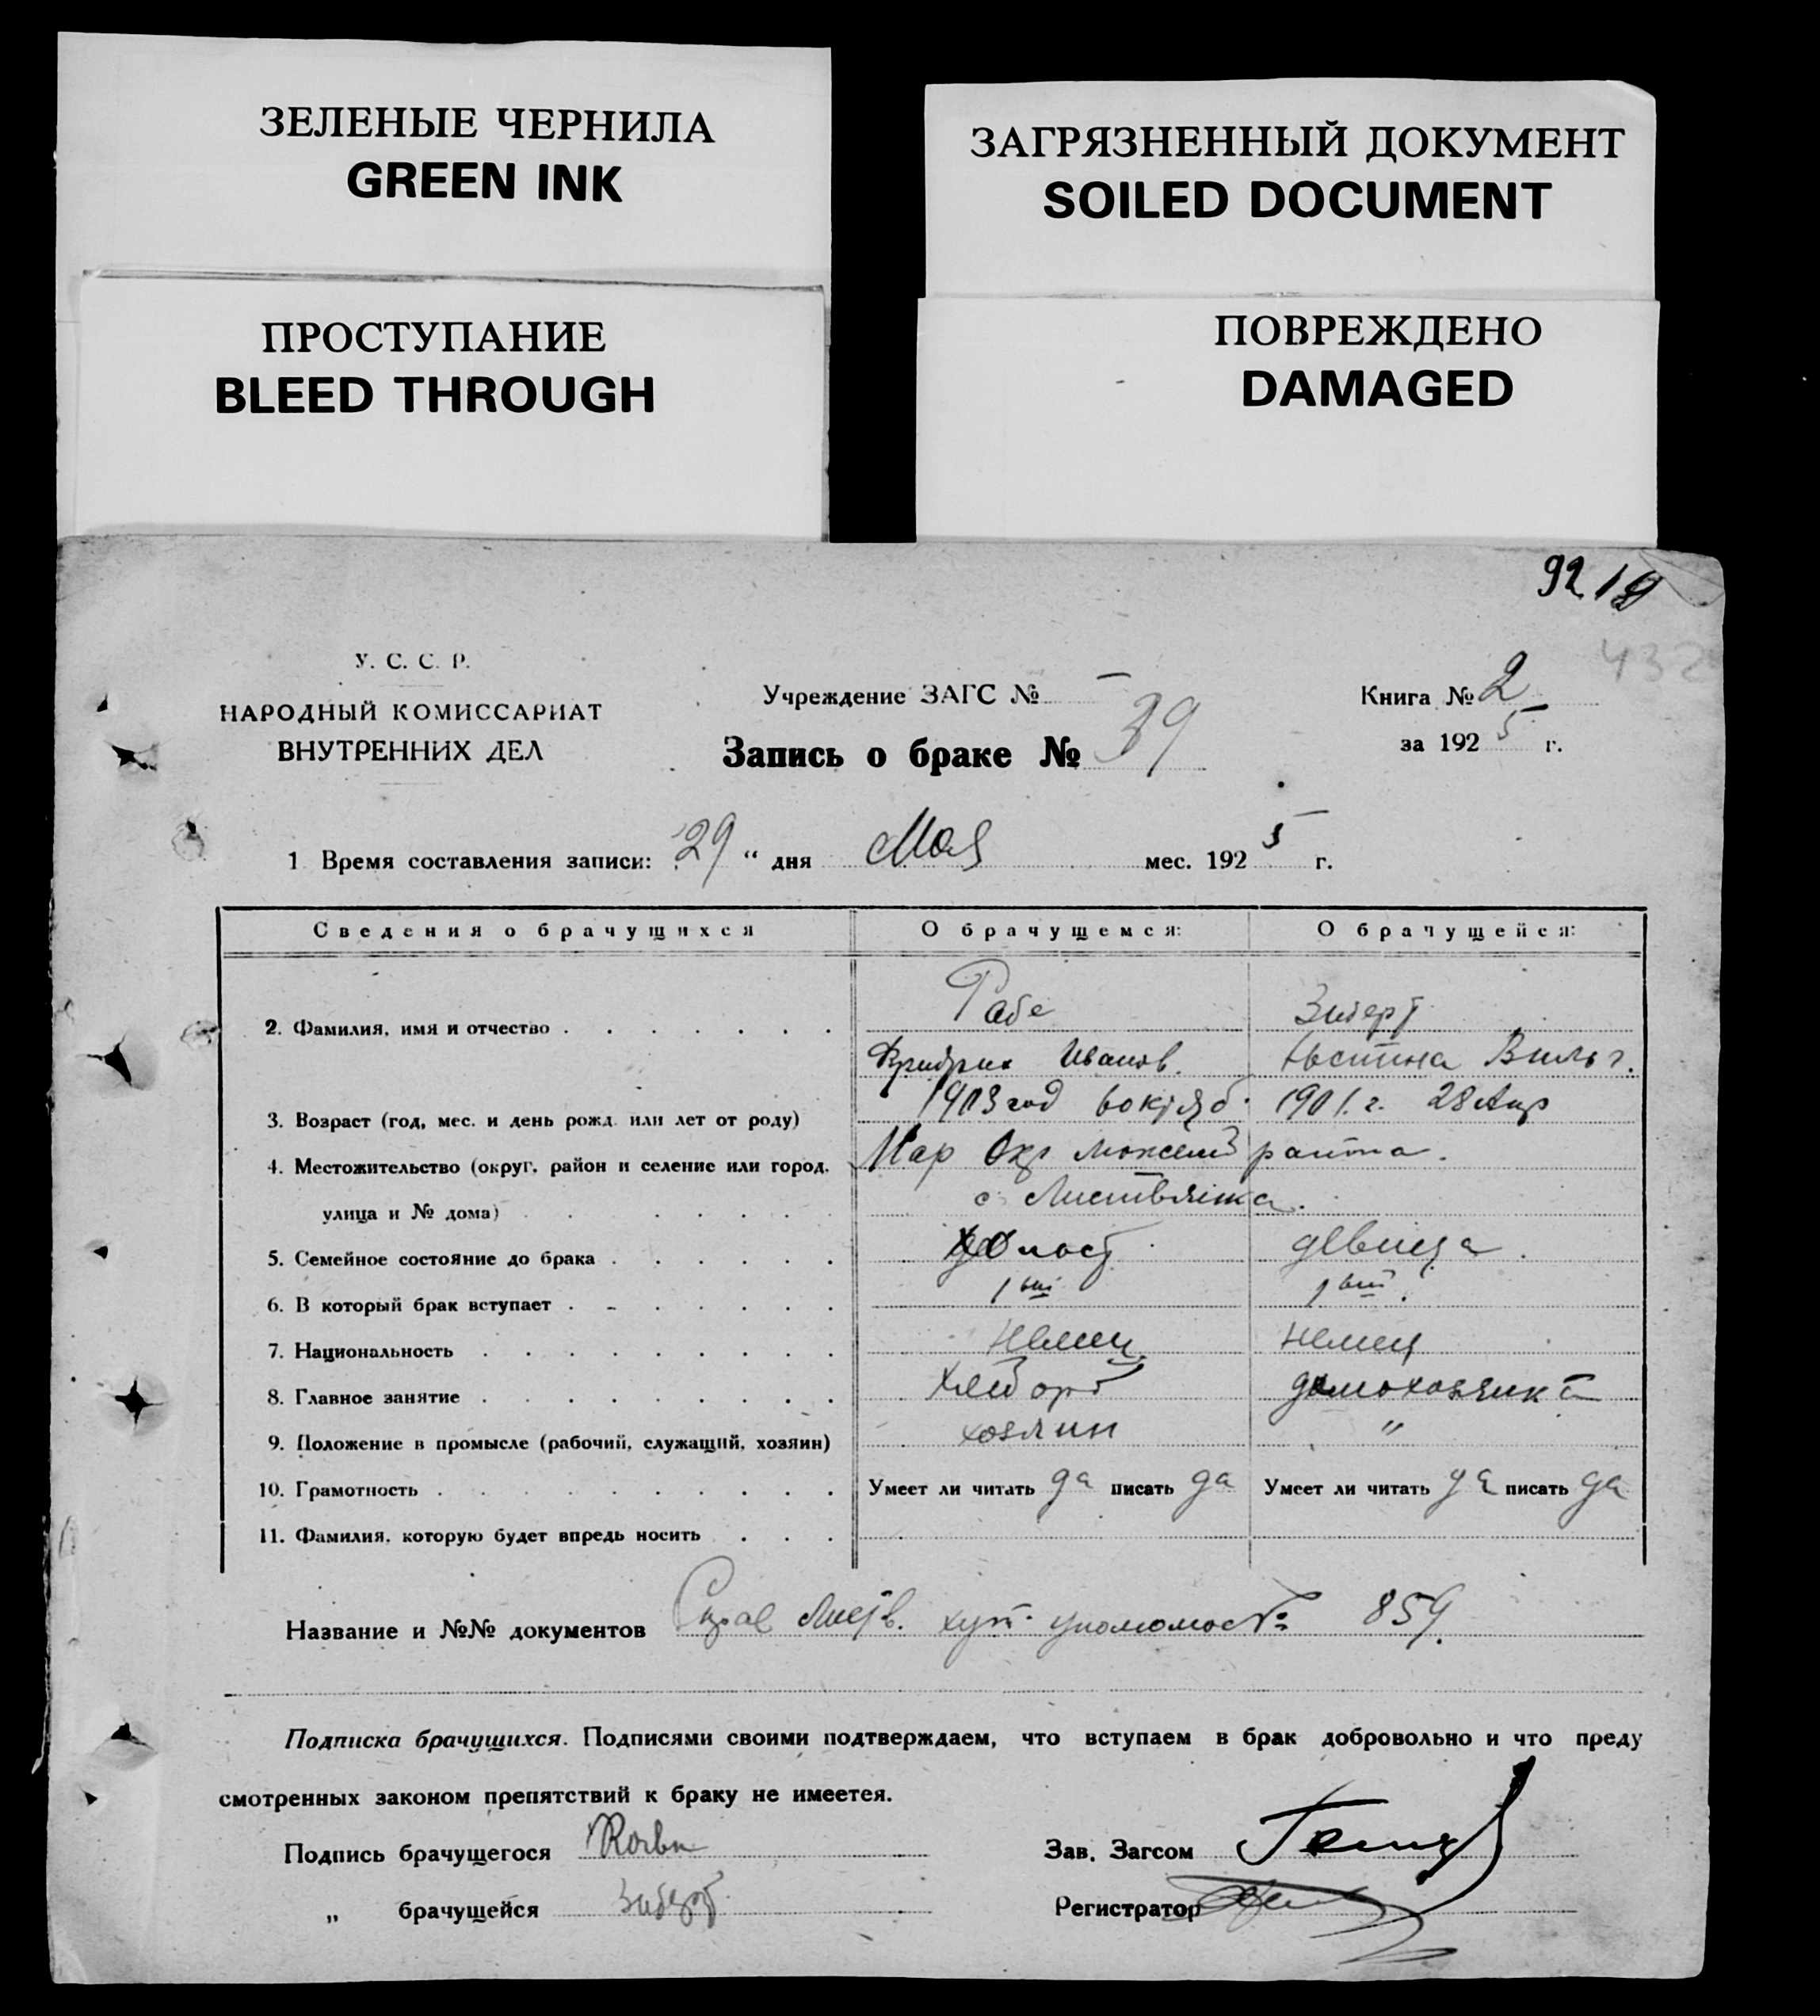 ЗЕЛЕНЫЕ ЧЕРНИЛА
GREEN INK
ЗАГРЯЗНЕННЫЙ ДОКУМЕНТ
SOILED DOCUMENT
ПРОСТУПАНИЕ
BLEED THROUGH
ПОВРЕЖДЕНО
DAMAGED
92
432
У. С. С. Р.
НАРОДНЫЙ КОМИССАРИАТ
ВНУТРЕННИХ ДЕЛ
Учреждение ЗАГС № —
Запись о браке № 39
Книга № 2
за 1925 г.
1 Время составления записи: „29“ дня Мая мес. 1925 г.
Сведения о брачущихся О брачущемся: О брачущейся:
Рабе Зиберт
2. Фамилия, имя и отчество
Фридрих Иванов. Юстина Вильг.
3. Возраст (год, мес. и день рожд. или лет от роду) 1903 год 1901. г. 28 Апр
4. Местожительство (округ, район и селение или город, Мар Окр района.
улица и № дома) с. Листвянка.
5. Семейное состояние до брака холост девица.
6. В который брак вступает 1ый 1ый.
7. Национальность немец немец
8. Главное занятие хлебороб домохозяйка
9. Положение в промысле (рабочий, служащий, хозяин) хозяин "
10. Грамотность Умеет ли читать да писать да Умеет ли читать да писать да
11. Фамилия, которую будет впредь носить
Название и №№ документов Справ Листв. хут. № 859.
Подписка брачущихся. Подписями своими подтверждаем, что вступаем в брак добровольно и что преду
смотренных законом препятствий к браку не имеется.
Подпись брачущегося
Зав. Загсом
„ брачущейся Зиберт
Регистратор